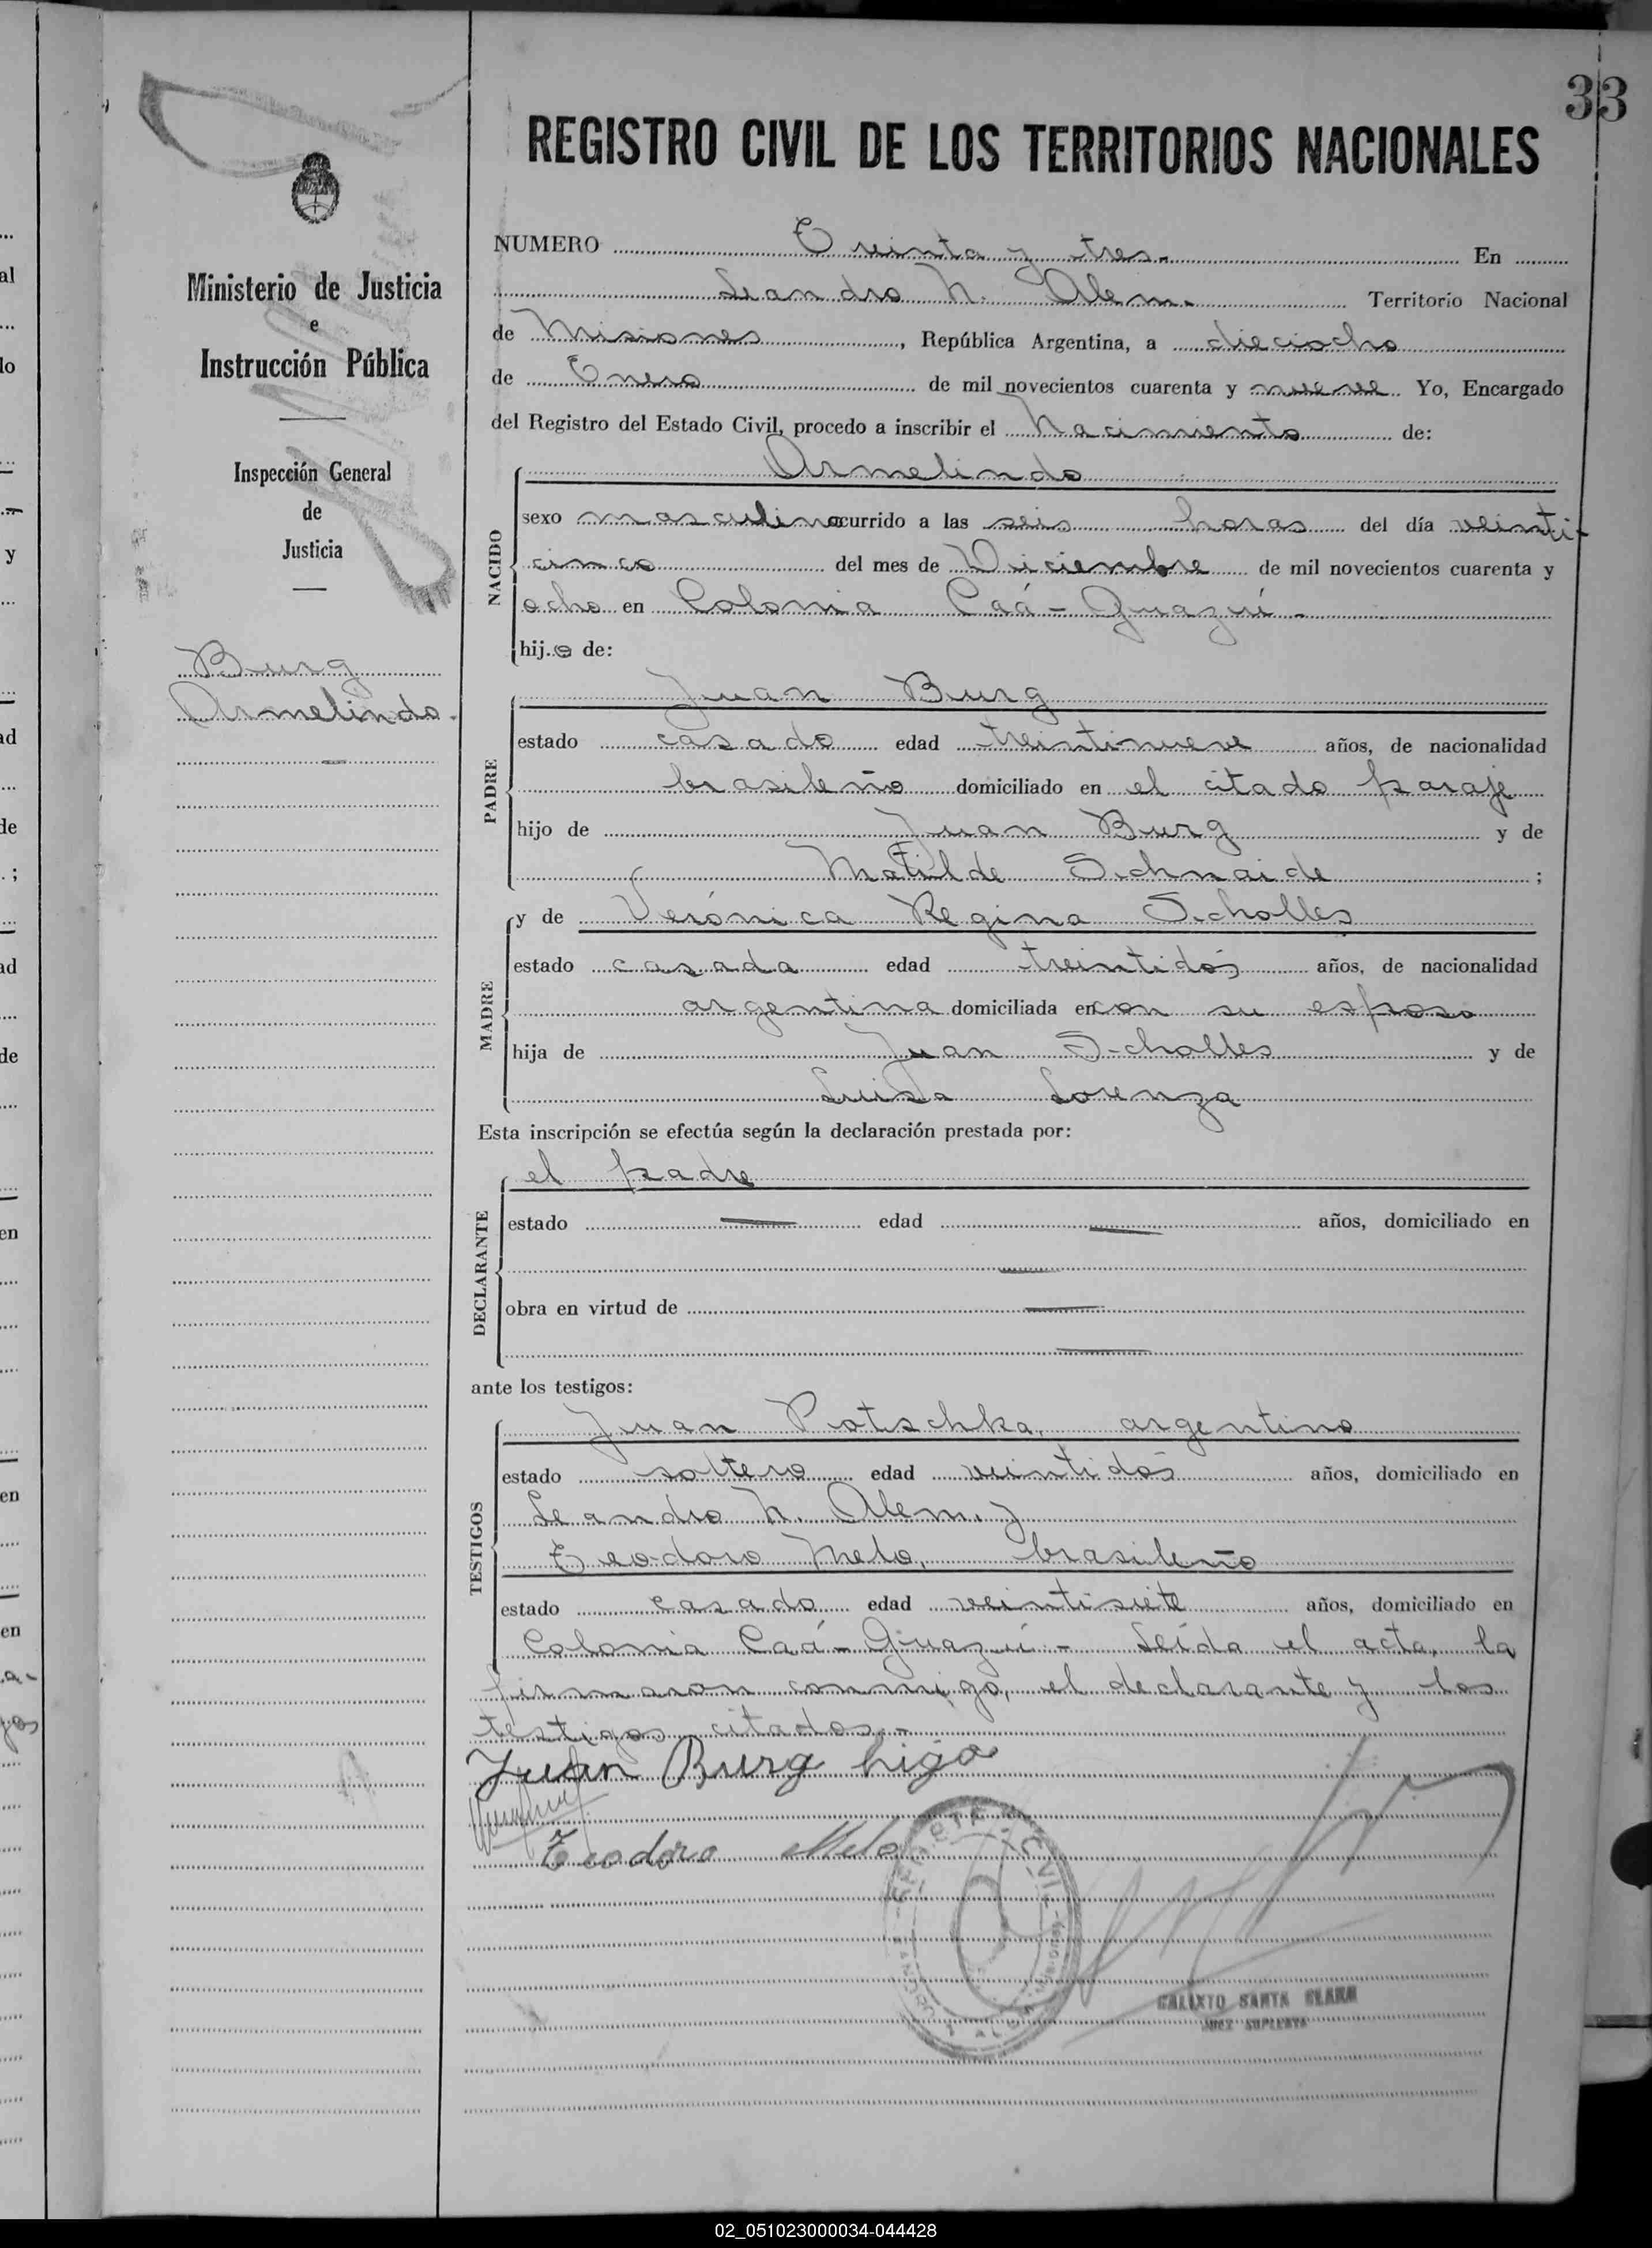 33
REGISTRO CIVIL DE LOS TERRITORIOS NACIONALES
Ministerio de Justicia
e
Instrucción Pública
Inspección General
de
Justicia
Burg
Armelindo.
NUMERO Treinta y tres.- En
Leandro N. Alem.- Territorio Nacional
de Misiones, República Argentina, a dieciocho
de Enero de mil novecientos cuarenta y nueve Yo, Encargado
del Registro del Estado Civil, procedo a inscribir el Nacimiento de:
NACIDO
Armelindo
sexo masculino ocurrido a las seis horas del día veinti-
cinco del mes de Diciembre de mil novecientos cuarenta y
ocho en Colonia Caá-Guazú.-
hijo de:
PADRE
Juan Burg
estado casado edad treintinueve años, de nacionalidad
brasileño domiciliado en el citado paraje
hijo de Juan Burg y de
Matilde Schnaide ;
MADRE
y de Verónica Regina Scholles
estado casada edad treintidós años, de nacionalidad
argentina domiciliada en con su esposo
hija de Juan Scholles y de
Luisa Lorenza
Esta inscripción se efectúa según la declaración prestada por:
DECLARANTE
el padre
estado — edad — años, domiciliado en
—
obra en virtud de —
—
ante los testigos:
TESTIGOS
Juan Potschka, argentino
estado soltero edad veintidós años, domiciliado en
Leandro N. Alem. y
Teodoro Melo, brasileño
estado casado edad veintisiete años, domiciliado en
Colonia Caá-Guazú.- Leída el acta, la
firmaron conmigo, el declarante y los
testigos citados.-
Juan Burg higo
Teodoro Melo
CALIXTO SANTA CLARA
JUEZ SUPLENTE
02_051023000034-044428